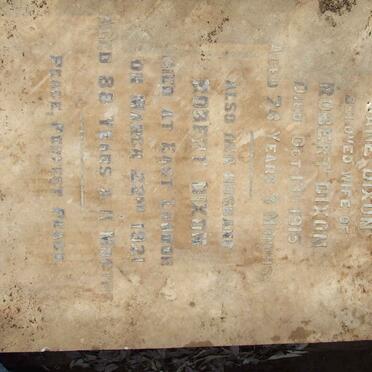 DIXON
BELOVED WIFE OF
ROBERT DIXON
DIED OCT. 1915
AGED 76 YEARS & MONTHS
ALSO HUSBAND
ROBERT DIXON
DIED AT EAST LONDON
ON MARCH 23RD 1921
AGED 88 YEARS & 11 MONTHS
PEACE, PERFECT PEACE.